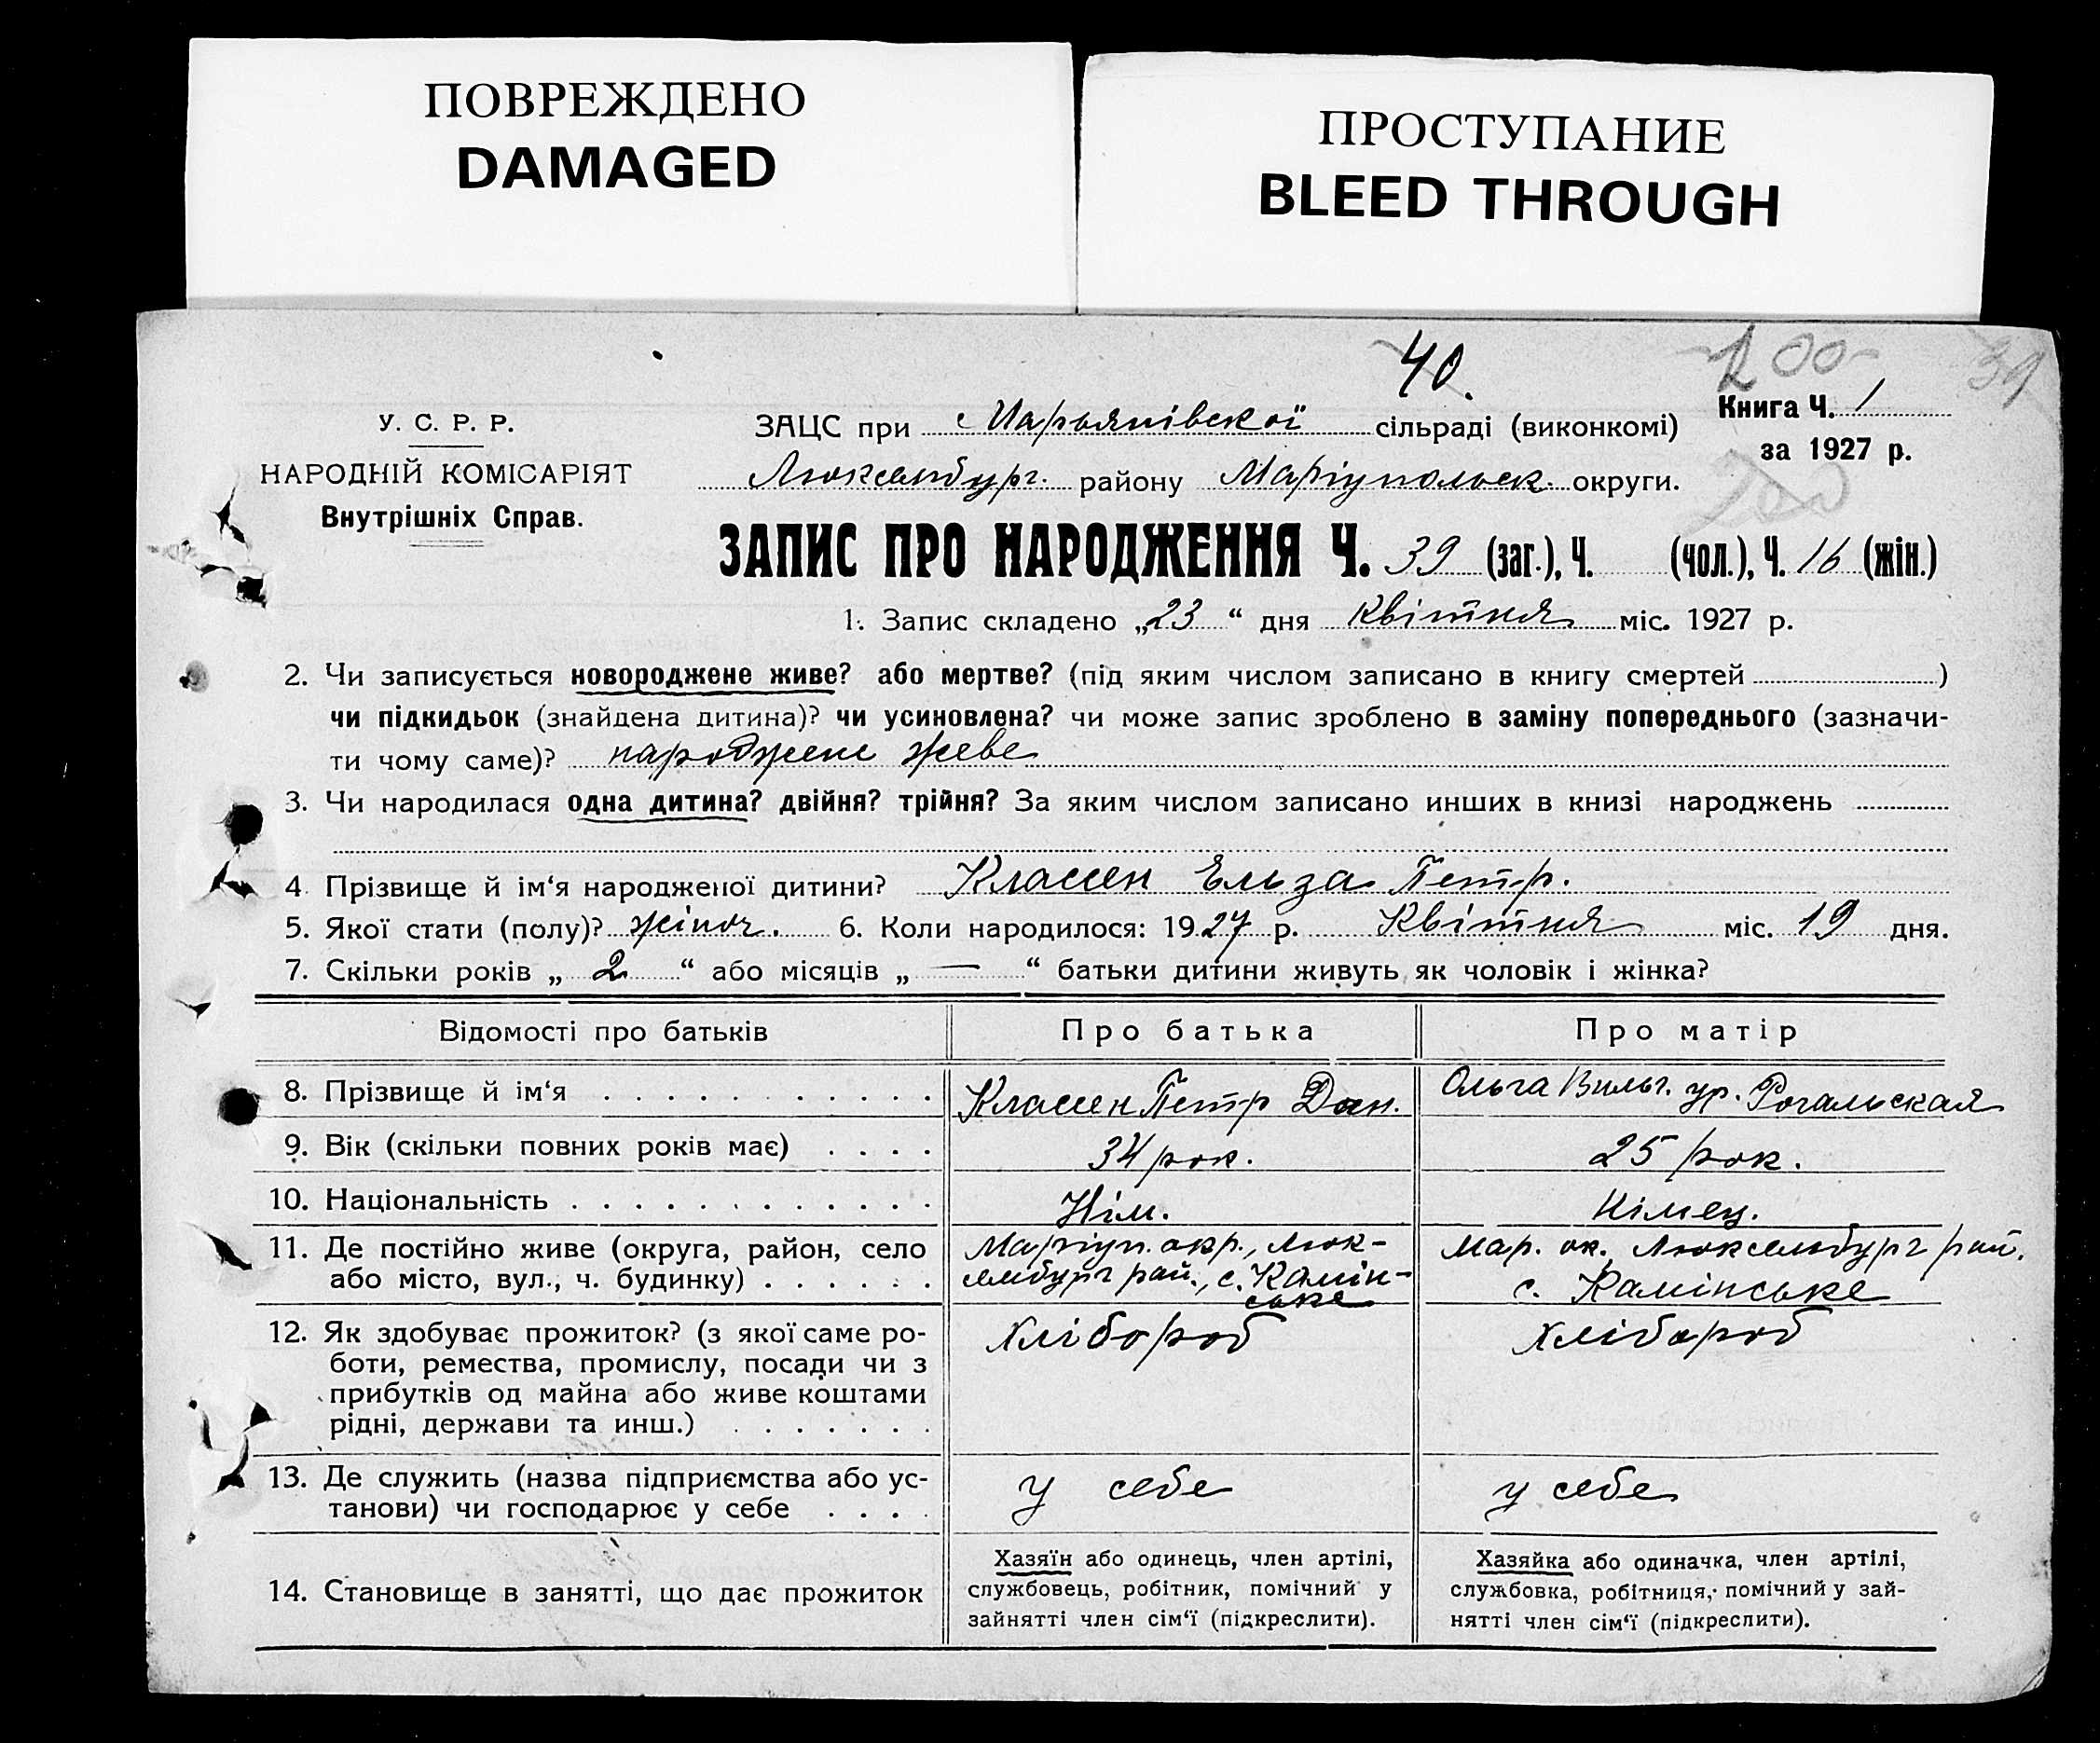 ПОВРЕЖДЕНО
DAMAGED
ПРОСТУПАНИЕ
BLEED THROUGH
40.
200
39
У. С. Р. Р.
НАРОДНІЙ КОМІСАРІЯТ
Внутрішніх Справ.
ЗАЦС при Марьянівскої сільраді (виконкомі)
Книга Ч. 1
за 1927 р.
Люксембург. району Маріупольск. округи.
200
ЗАПИС ПРО НАРОДЖЕННЯ Ч. 39 (заг.), Ч. (чол.), Ч. 16 (жін.)
1. Запис складено „23“ дня Квітня міс. 1927 р.
2. Чи записується новороджене живе? або мертве? (під яким числом записано в книгу смертей )
чи підкидьок (знайдена дитина)? чи усиновлена? чи може запис зроблено в заміну попереднього (зазначи-
ти чому саме)? народжене живе
3. Чи народилася одна дитина? двійня? трійня? За яким числом записано инших в книзі народжень
4. Прізвище й ім‘я народженої дитини? Классен Ельза Петр.
5. Якої стати (полу)? жіноч. 6. Коли народилося: 1927 р. Квітня міс. 19 дня.
7. Скільки років „ 2 “ або місяців „ — “ батьки дитини живуть як чоловік і жінка?
Відомості про батьків
Про батька
Про матір
8. Прізвище й ім‘я . . . . . . . . . . .
Классен Петр Дан.
Ольга Вильг. ур. Рогальская
9. Вік (скільки повних років має) . . . .
34 рок.
25 рок.
10. Національність . . . . . . . . . . . .
Нім.
Німец.
11. Де постійно живе (округа, район, село
або місто, вул., ч. будинку) . . . . . .
Маріуп. окр., Люк-
сембург рай., с. Камін-
ське
Мар. ок. Люксембург рай.
с. Камінське
12. Як здобуває прожиток? (з якої саме ро-
боти, ремества, промислу, посади чи з
прибутків од майна або живе коштами
рідні, держави та инш.) . . . . . . .
Хлібороб
Хлібороб
13. Де служить (назва підприємства або ус-
танови) чи господарює у себе . . . .
у себе
у себе
14. Становище в занятті, що дає прожиток
Хазяїн або одинець, член артілі,
службовець, робітник, помічний у
зайнятті член сім‘ї (підкреслити).
Хазяйка або одиначка, член артілі,
службовка, робітниця, помічний у зай-
нятті член сім‘ї (підкреслити).